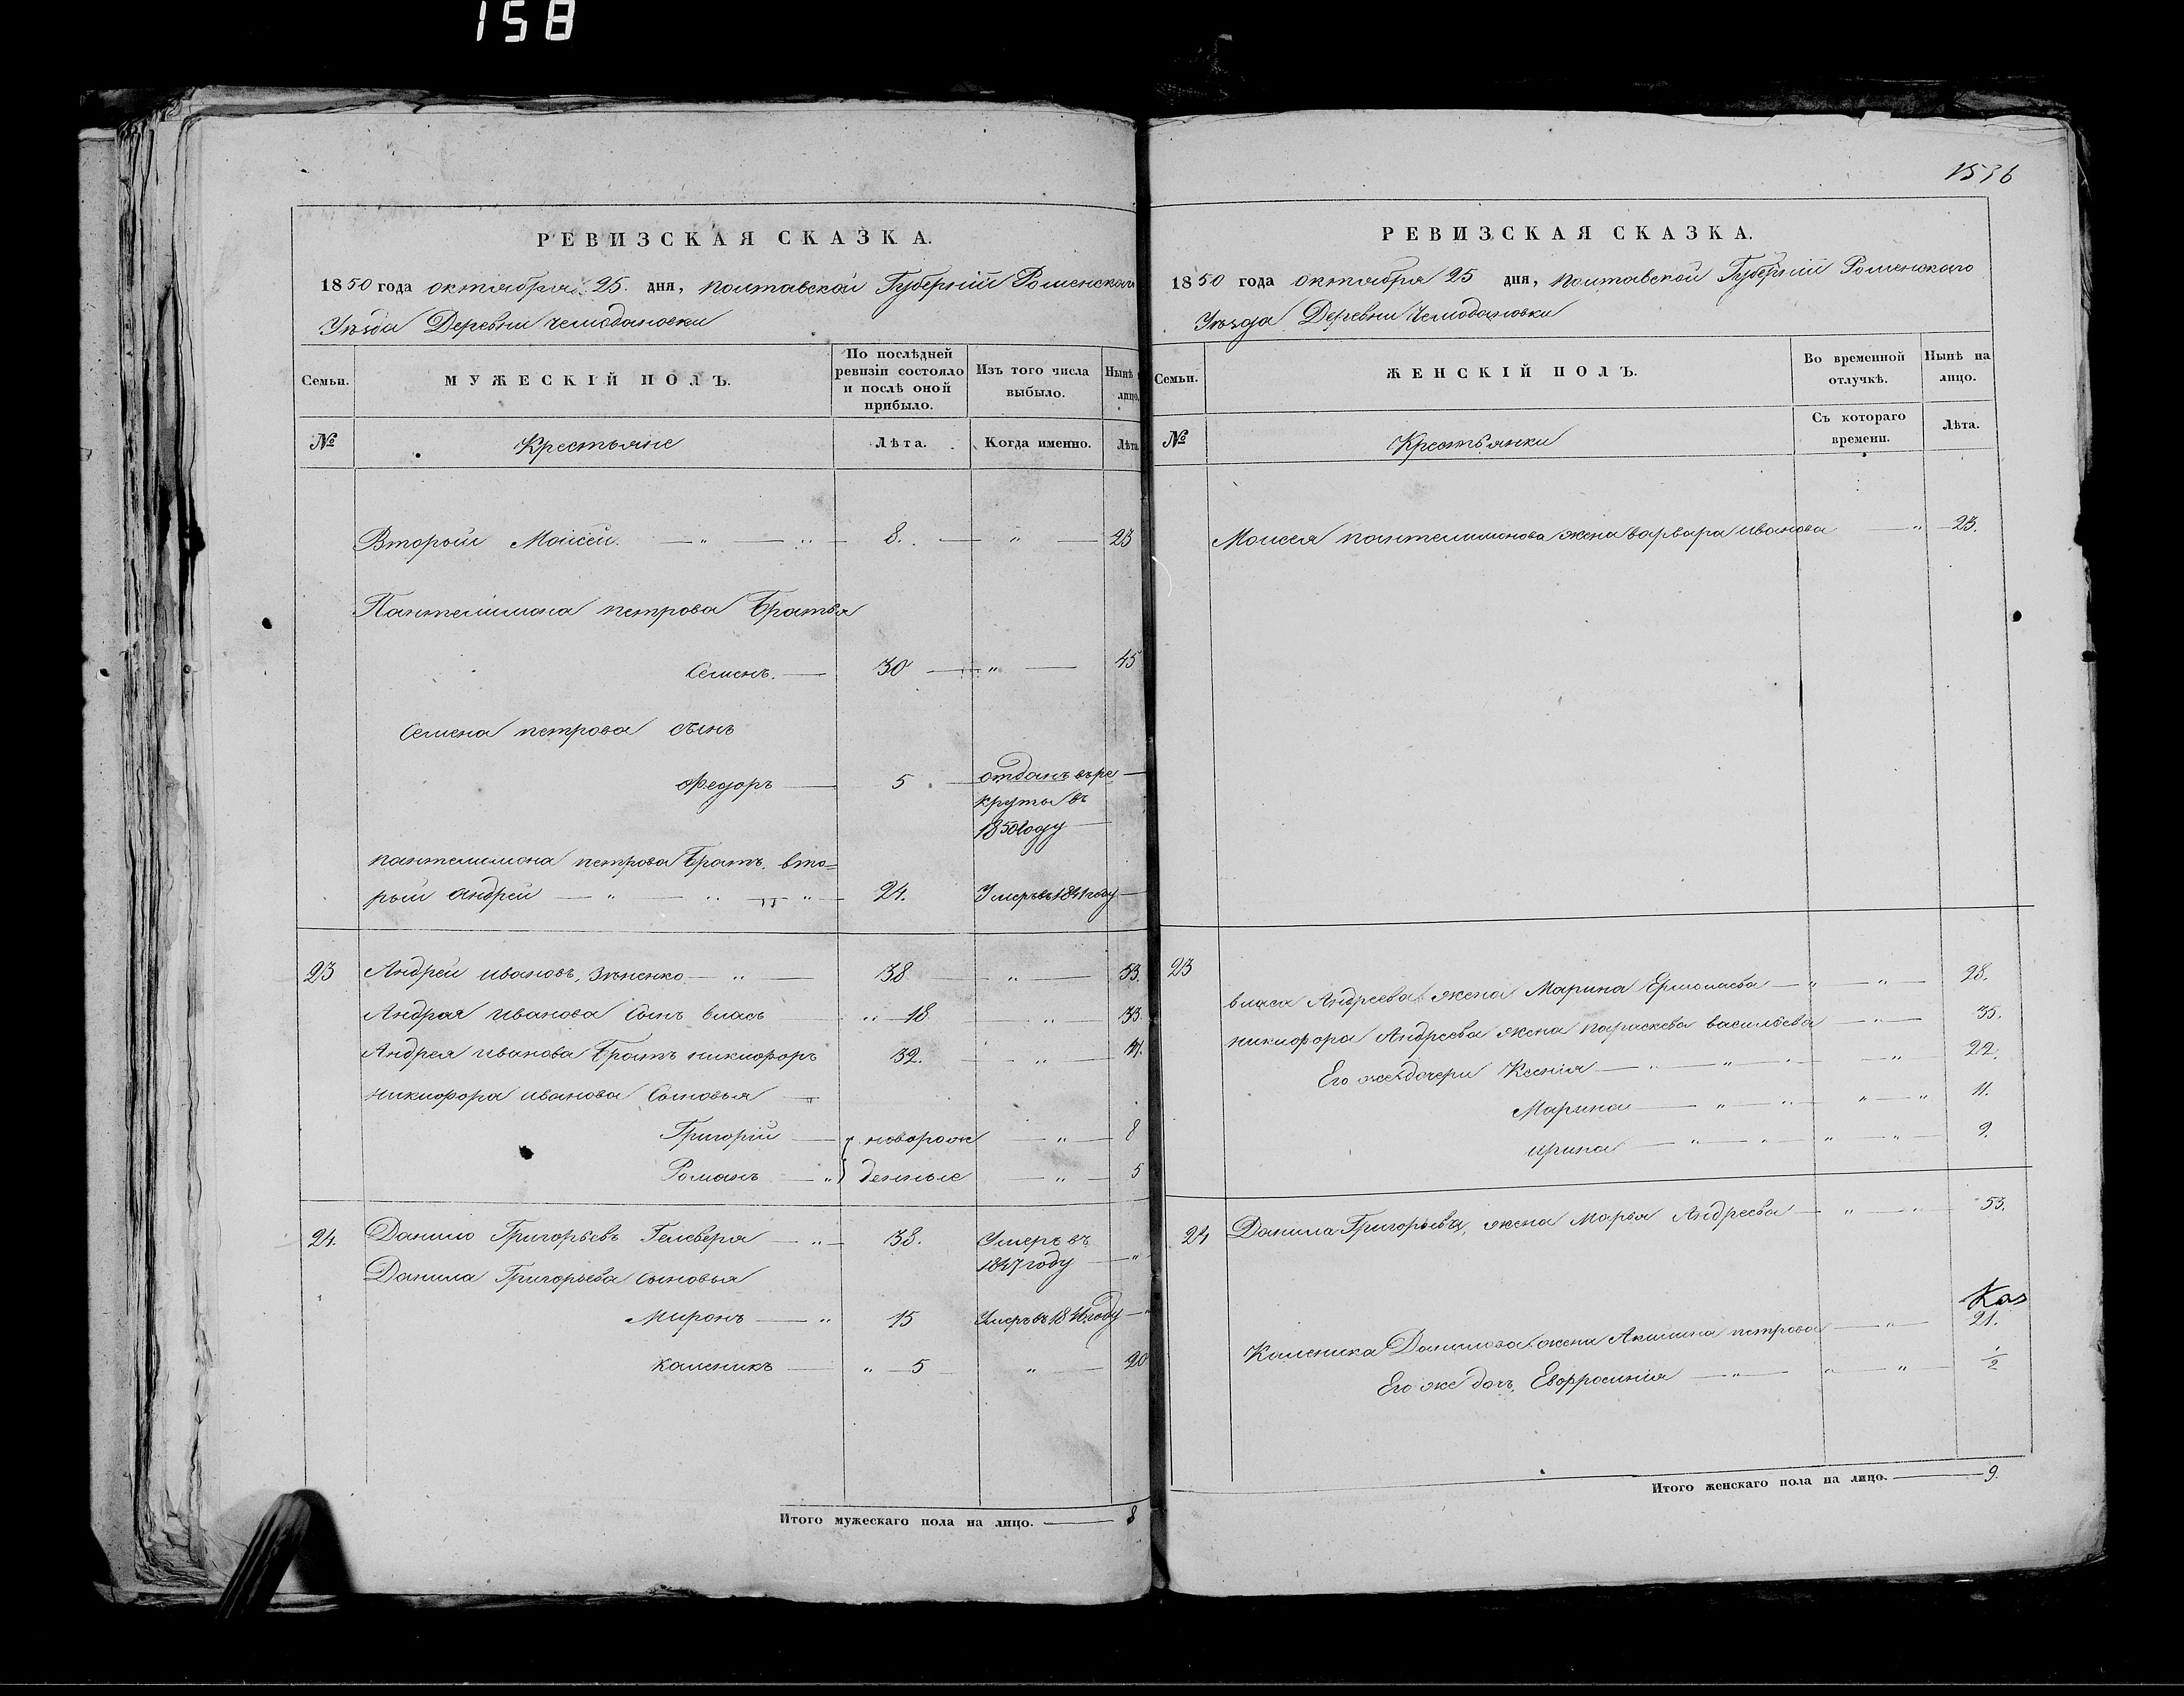 158
РЕВИЗСКАЯ СКАЗКА.
1850 года октября 25. дня, полтавской Губерній Роменскаго
Уѣзда Деревни Чемодановки
Семьи.
МУЖЕСКІЙ ПОЛЪ.
По послѣдней ревизіи состояло и послѣ оной прибыло.
Изъ того числа выбыло.
Нынѣ лицо.
№
Крестьяне
Лѣта.
Когда именно.
Лѣта
Второй Моисей. 8. 23
Пантелимона петрова Братья
Семенъ. 30 45
Семена петрова сынъ
Федоръ 5 отданъ въре
круты въ
1850 году
пантелимона петрова Братъ вто=
рый андрей 24. Умеръ въ 1841 году
23 Андрей ивановъ, Зѣненко 38 53.
Андрея иванова Сынъ власъ 18 33
Андрея иванова Братъ никифоръ 32. 47.
никифора иванова Сыновья
Григорій новорож 8
Романъ денные 5
24. Данило Григорьевъ Гелеверя 38. Умеръ въ
1847 году
Данила Григорьева сыновья
Миронъ 15 Умеръ въ 1846 году
каленикъ 5 20
Итого мужескаго пола на лицо. 8
1536
РЕВИЗСКАЯ СКАЗКА.
1850 года октября 25 дня, полтавской Губерній Роменскаго
Уѣзда Деревни Чемодановки
Семьи.
ЖЕНСКІЙ ПОЛЪ.
Во временной отлучкѣ.
Нынѣ на лицо.
№
Крестьянки
Съ котораго времени.
Лѣта.
Моисея пантелимонова жена варвара иванова 23.
23
власа Андреева жена Марина Ермолаева 28.
никифора Андреева жена параскева васильева 35.
Его же дочери Ксенія 22.
Марина 11.
ирина 9.
24 Данила Григорьева, жена марья Андреева 53.
Каленика Данилова жена Акилина петрова 21.
Его же дочь, Евфросинія 1/2
Итого женскаго пола на лицо. 9.